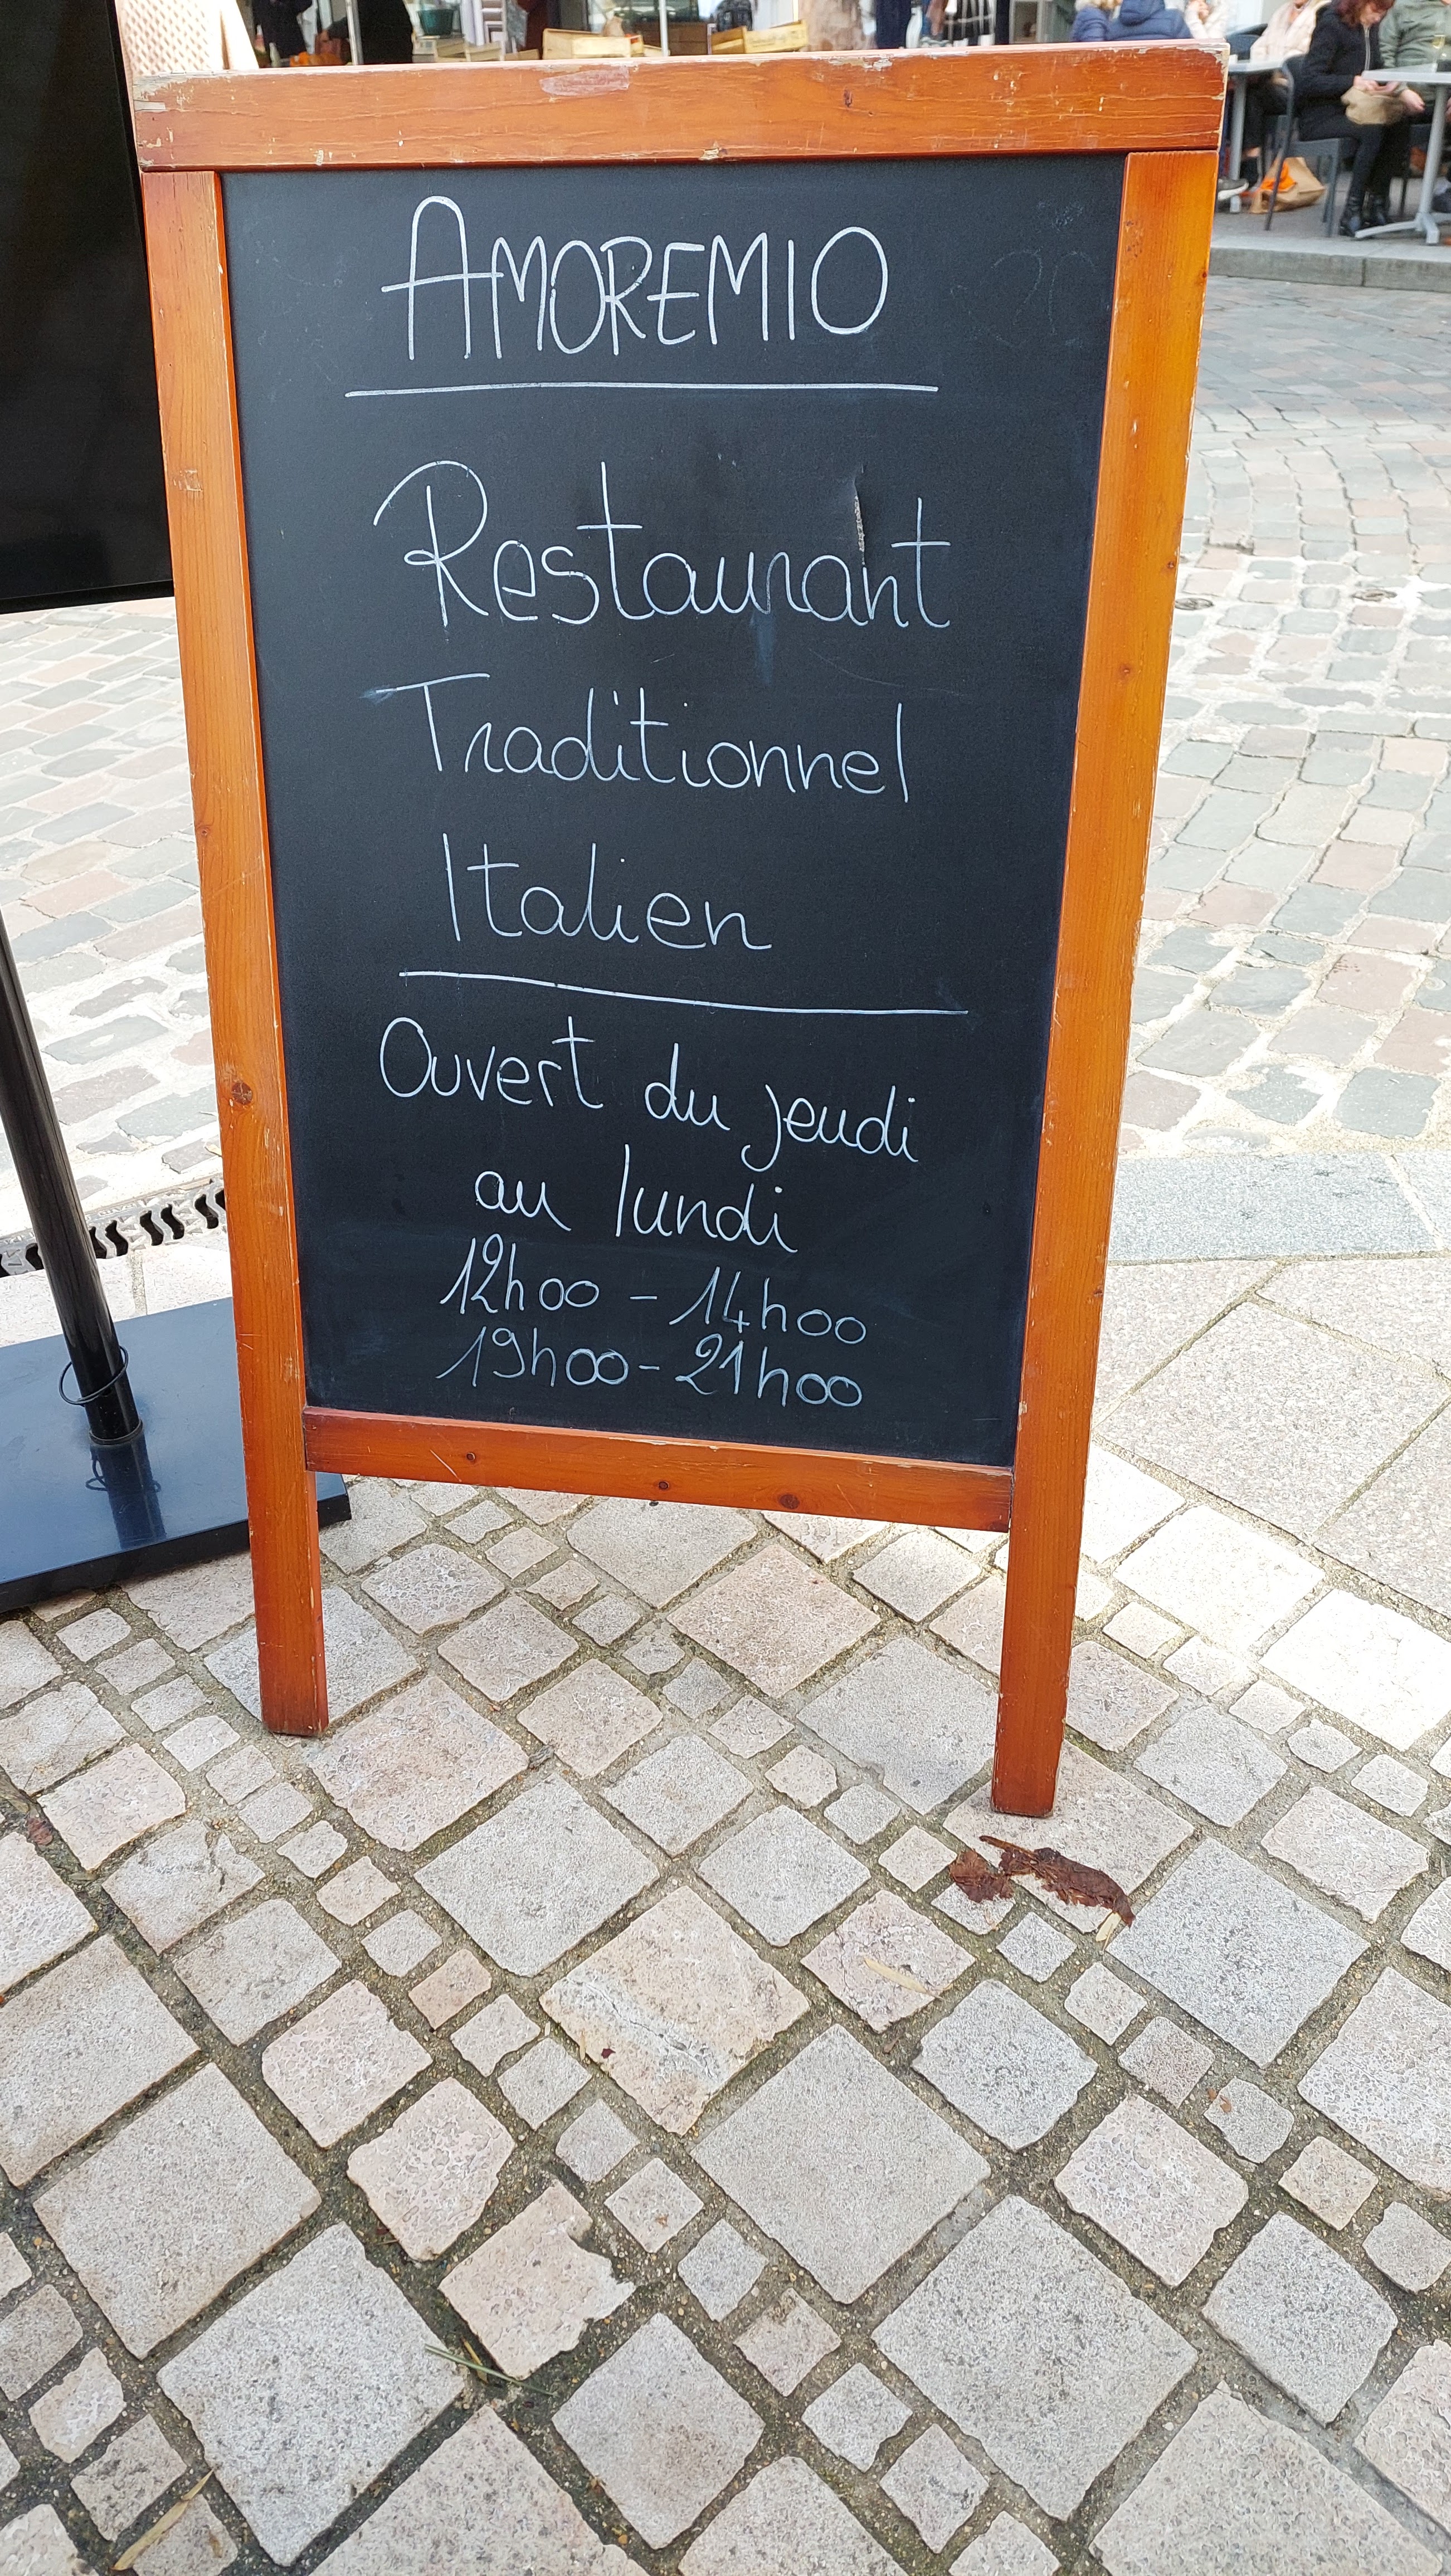 AMOREMIO
Restaurant
Traditionnel
Italien
Ouvert du jeudi
au lundi
12h00 - 14h00
19h00 - 21h00